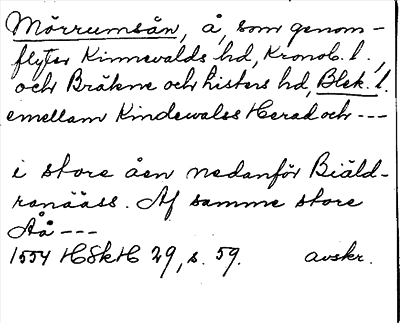 Mörrumsån, å, som genom-
flyter Kinnevalds hd, Kronob. l.,
och Bräkne och Listers hd, Blek. l.
emellam Kindewalss Herad och ---
i store åen nedanför Biäld-
ranääss. Af samme store
Aå ---
1554 HSkH 29, s. 59. avskr.